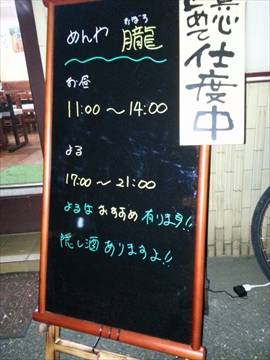 おぼろ
めんや 朧
お昼
11:00～14:00
よる
17:00～21:00
よるはおすすめ有ります!!
隠し酒ありますよ!!
心
こめて
仕度中